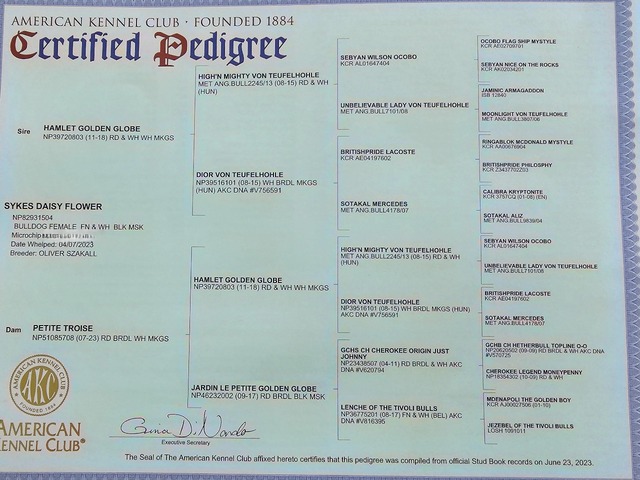 AMERICAN KENNEL CLUB · FOUNDED 1884
Certified Pedigree
SYKES DAISY FLOWER
NP82931504
BULLDOG FEMALE FN & WH BLK MSK
Microchip
Date Whelped: 04/07/2023
Breeder: OLIVER SZAKALL
Sire
HAMLET GOLDEN GLOBE
NP39720803 (11-18) RD & WH WH MKGS
Dam
PETITE TROISE
NP51085708 (07-23) RD BRDL WH MKGS
HIGH'N MIGHTY VON TEUFELHOHLE
MET ANG.BULL2245/13 (08-15) RD & WH
(HUN)
DIOR VON TEUFELHOHLE
NP39516101 (08-15) WH BRDL MKGS
(HUN) AKC DNA #V756591
HAMLET GOLDEN GLOBE
NP39720803 (11-18) RD & WH WH MKGS
JARDIN LE PETITE GOLDEN GLOBE
NP46232002 (09-17) RD BRDL BLK MSK
SEBYAN WILSON OCOBO
KCR AL01647404
UNBELIEVABLE LADY VON TEUFELHOHLE
MET ANG.BULL7101/08
BRITISHPRIDE LACOSTE
KCR AE04197602
SOTAKAL MERCEDES
MET ANG.BULL4178/07
HIGH'N MIGHTY VON TEUFELHOHLE
MET ANG.BULL2245/13 (08-15) RD & WH
(HUN)
DIOR VON TEUFELHOHLE
NP39516101 (08-15) WH BRDL MKGS (HUN)
AKC DNA #V756591
GCHS CH CHEROKEE ORIGIN JUST
JOHNNY
NP23438507 (04-11) RD BRDL & WH AKC
DNA #V620794
LENCHE OF THE TIVOLI BULLS
NP36775201 (08-17) FN & WH (BEL) AKC
DNA #V816395
OCOBO FLAG SHIP MYSTYLE
KCR AE02709701
SEBYAN NICE ON THE ROCKS
KCR AK02034201
JAMINIC ARMAGADDON
ISB 12840
MOONLIGHT VON TEUFELHOHLE
MET ANG.BULL3807/06
RINGABLOK MCDONALD MYSTYLE
KCR AA00676904
BRITISHPRIDE PHILOSPHY
KCR Z3437702Z03
CALIBRA KRYPTONITE
KCR 3757CQ (01-08) (EN)
SOTAKAL ALIZ
MET ANG.BULL9839/04
SEBYAN WILSON OCOBO
KCR AL01647404
UNBELIEVABLE LADY VON TEUFELHOHLE
MET ANG.BULL7101/08
BRITISHPRIDE LACOSTE
KCR AE04197602
SOTAKAL MERCEDES
MET ANG.BULL4178/07
GCHB CH HETHERBULL TOPLINE O-O
NP20620502 (09-09) RD BRDL & WH AKC DNA
#V570725
CHEROKEE LEGEND MONEYPENNY
NP18354302 (10-09) RD & WH
MDENAPOLI THE GOLDEN BOY
KCR AJ00627506 (01-10)
JEZEBEL OF THE TIVOLI BULLS
LOSH 1091011
AMERICAN KENNEL CLUB
AKC
FOUNDED 1884
AMERICAN
KENNEL CLUB®
Gina D. Nardo
Executive Secretary
The Seal of The American Kennel Club affixed hereto certifies that this pedigree was compiled from official Stud Book records on June 23, 2023.